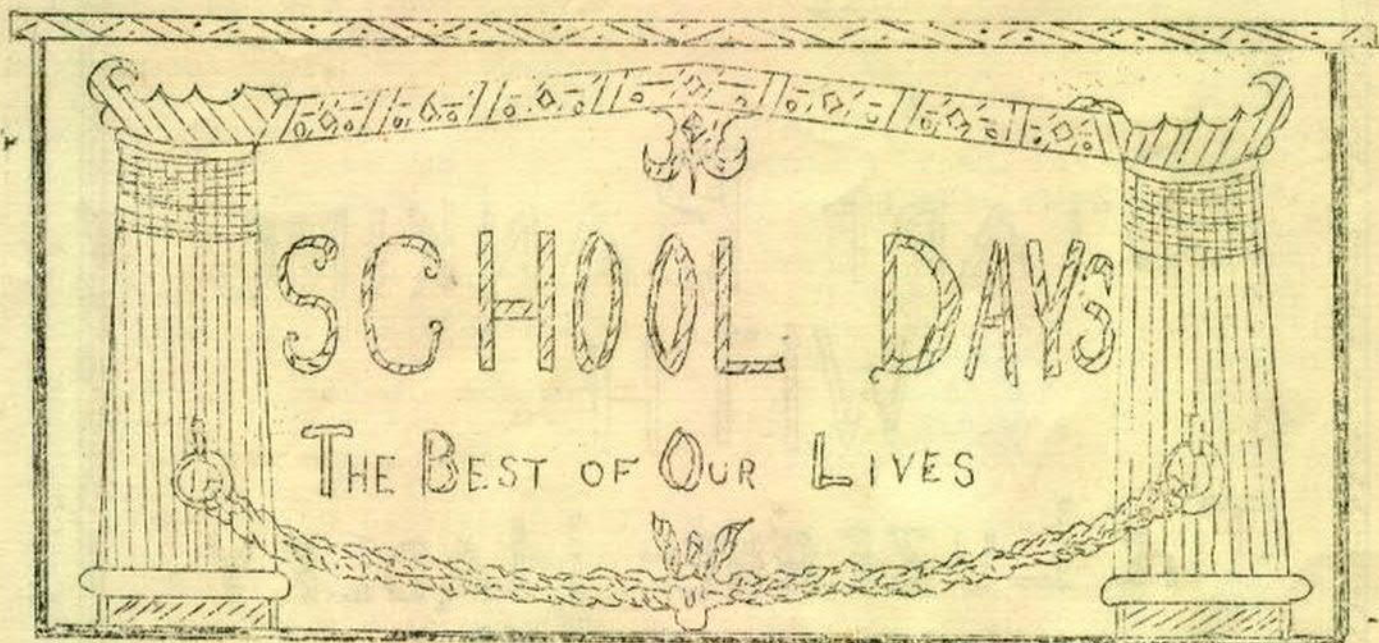 SCHOOL DAYS
THE BEST OF OUR LIVES